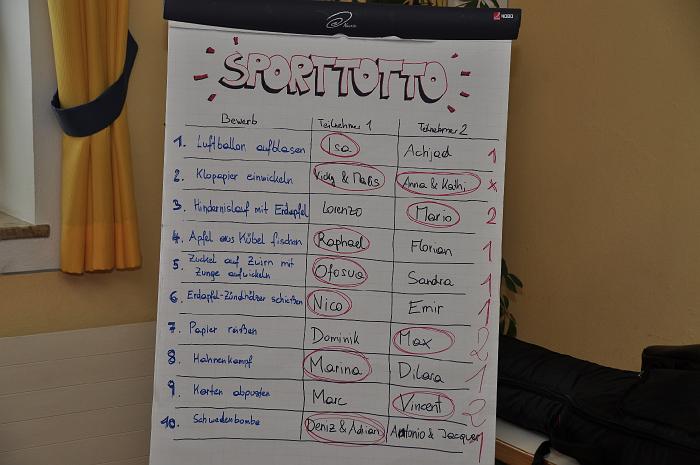 NOBO
SPORTTOTTO
Bewerb Teilnehmer 1 Teilnehmer 2
1. Luftballon aufblasen Isa Achjad 1
2. Klopapier einwickeln Vicky & Matis Anna & Kathi x
3. Hindernislauf mit Erdapfel Lorenzo Mario 2
4. Apfel aus Kübel fischen Raphael Florian 1
5. Zuckel auf Zwirn mit
Zunge aufwickeln Ofosua Sandra 1
6. Erdapfel-Zündhölzer schießen Nico Emir 1
7. Papier reißen Dominik Max 2
8. Hahnenkampf Marina Dilara 1
9. Karten abpusten Marc Vincent 2
10. Schwedenbombe Deniz & Adrian Antonio & Jacques 1